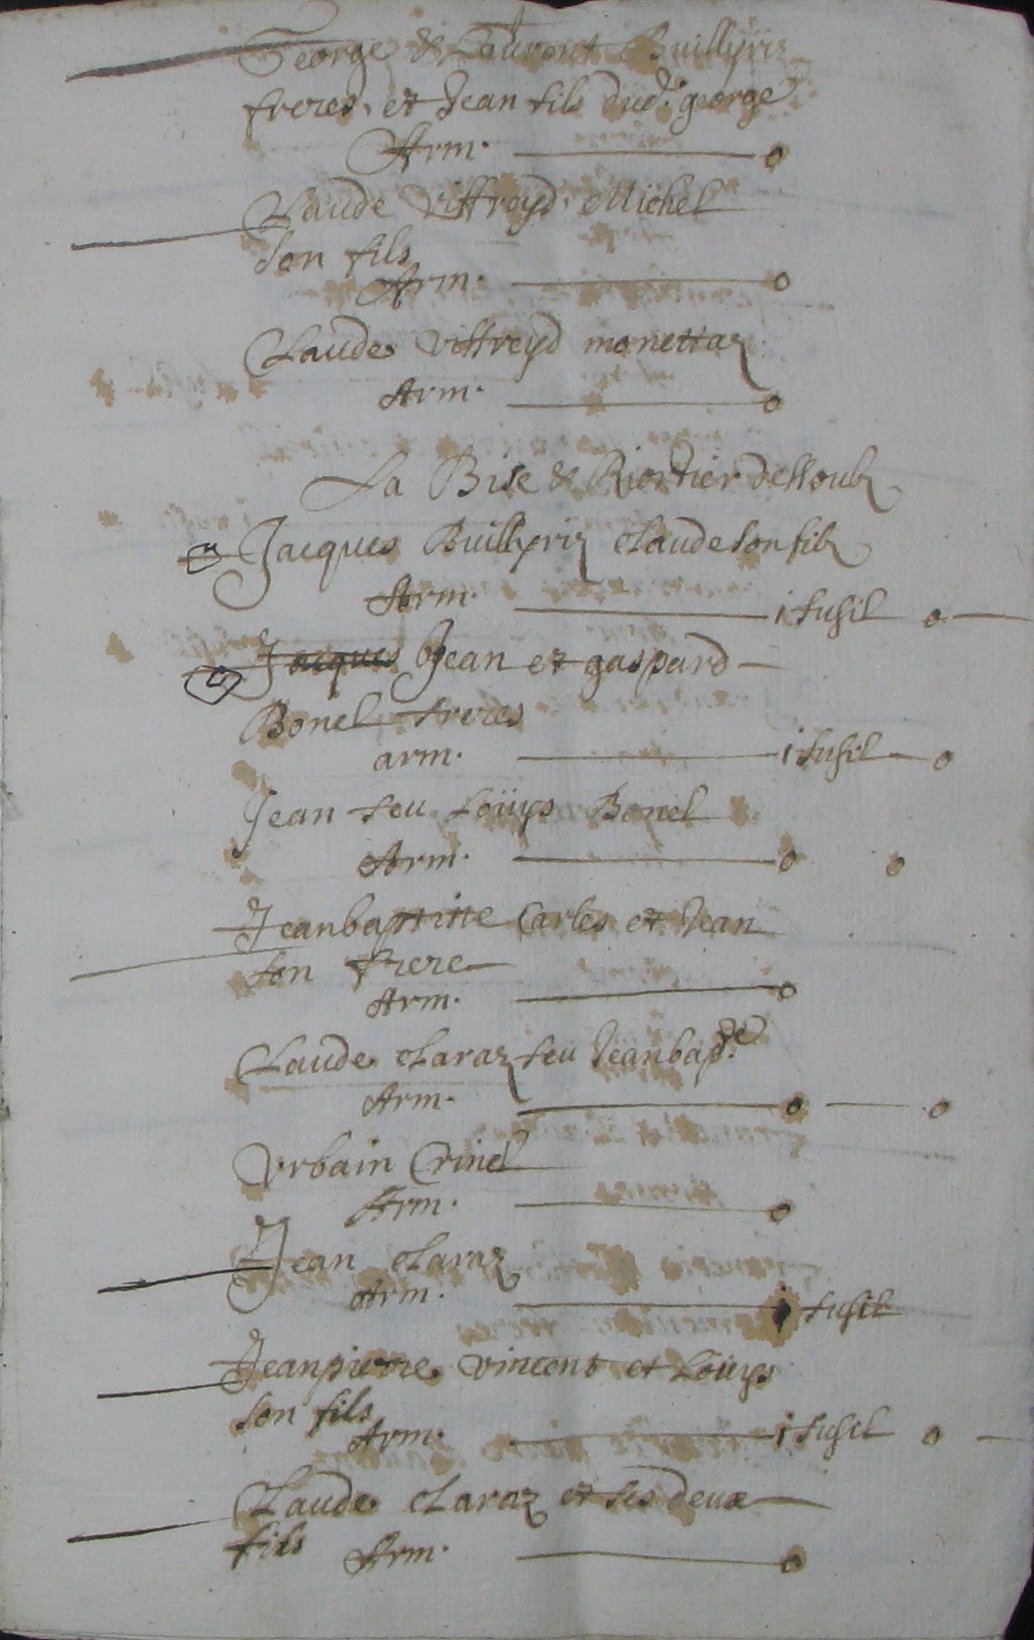 George & Laurent Buillyriz
freres, et Jean fils dud. george
Arm. o
Claude Viffreyd, Michel
son fils
Arm. o
Claude viffreyd monettaz
Arm. o
La Bise & dessoubz
Jacques Buillyriz claude son filz
Arm. 1 fusil o
Jacques Jean et gaspard
Bonel freres
arm. 1 fusil o
Jean feu Loüys Bonel
Arm. o o
Jeanbaptitte Carles et Jean
son frere
Arm. o
Claude claraz feu Jeanbap.te
Arm. o o
Urbain Crinel
Arm. o
Jean claraz
Arm. 1 fusil
Jeanpierre vincent et Loüys
son fils
Arm. 1 fusil o
Claude claraz et ses deux
fils
Arm. o